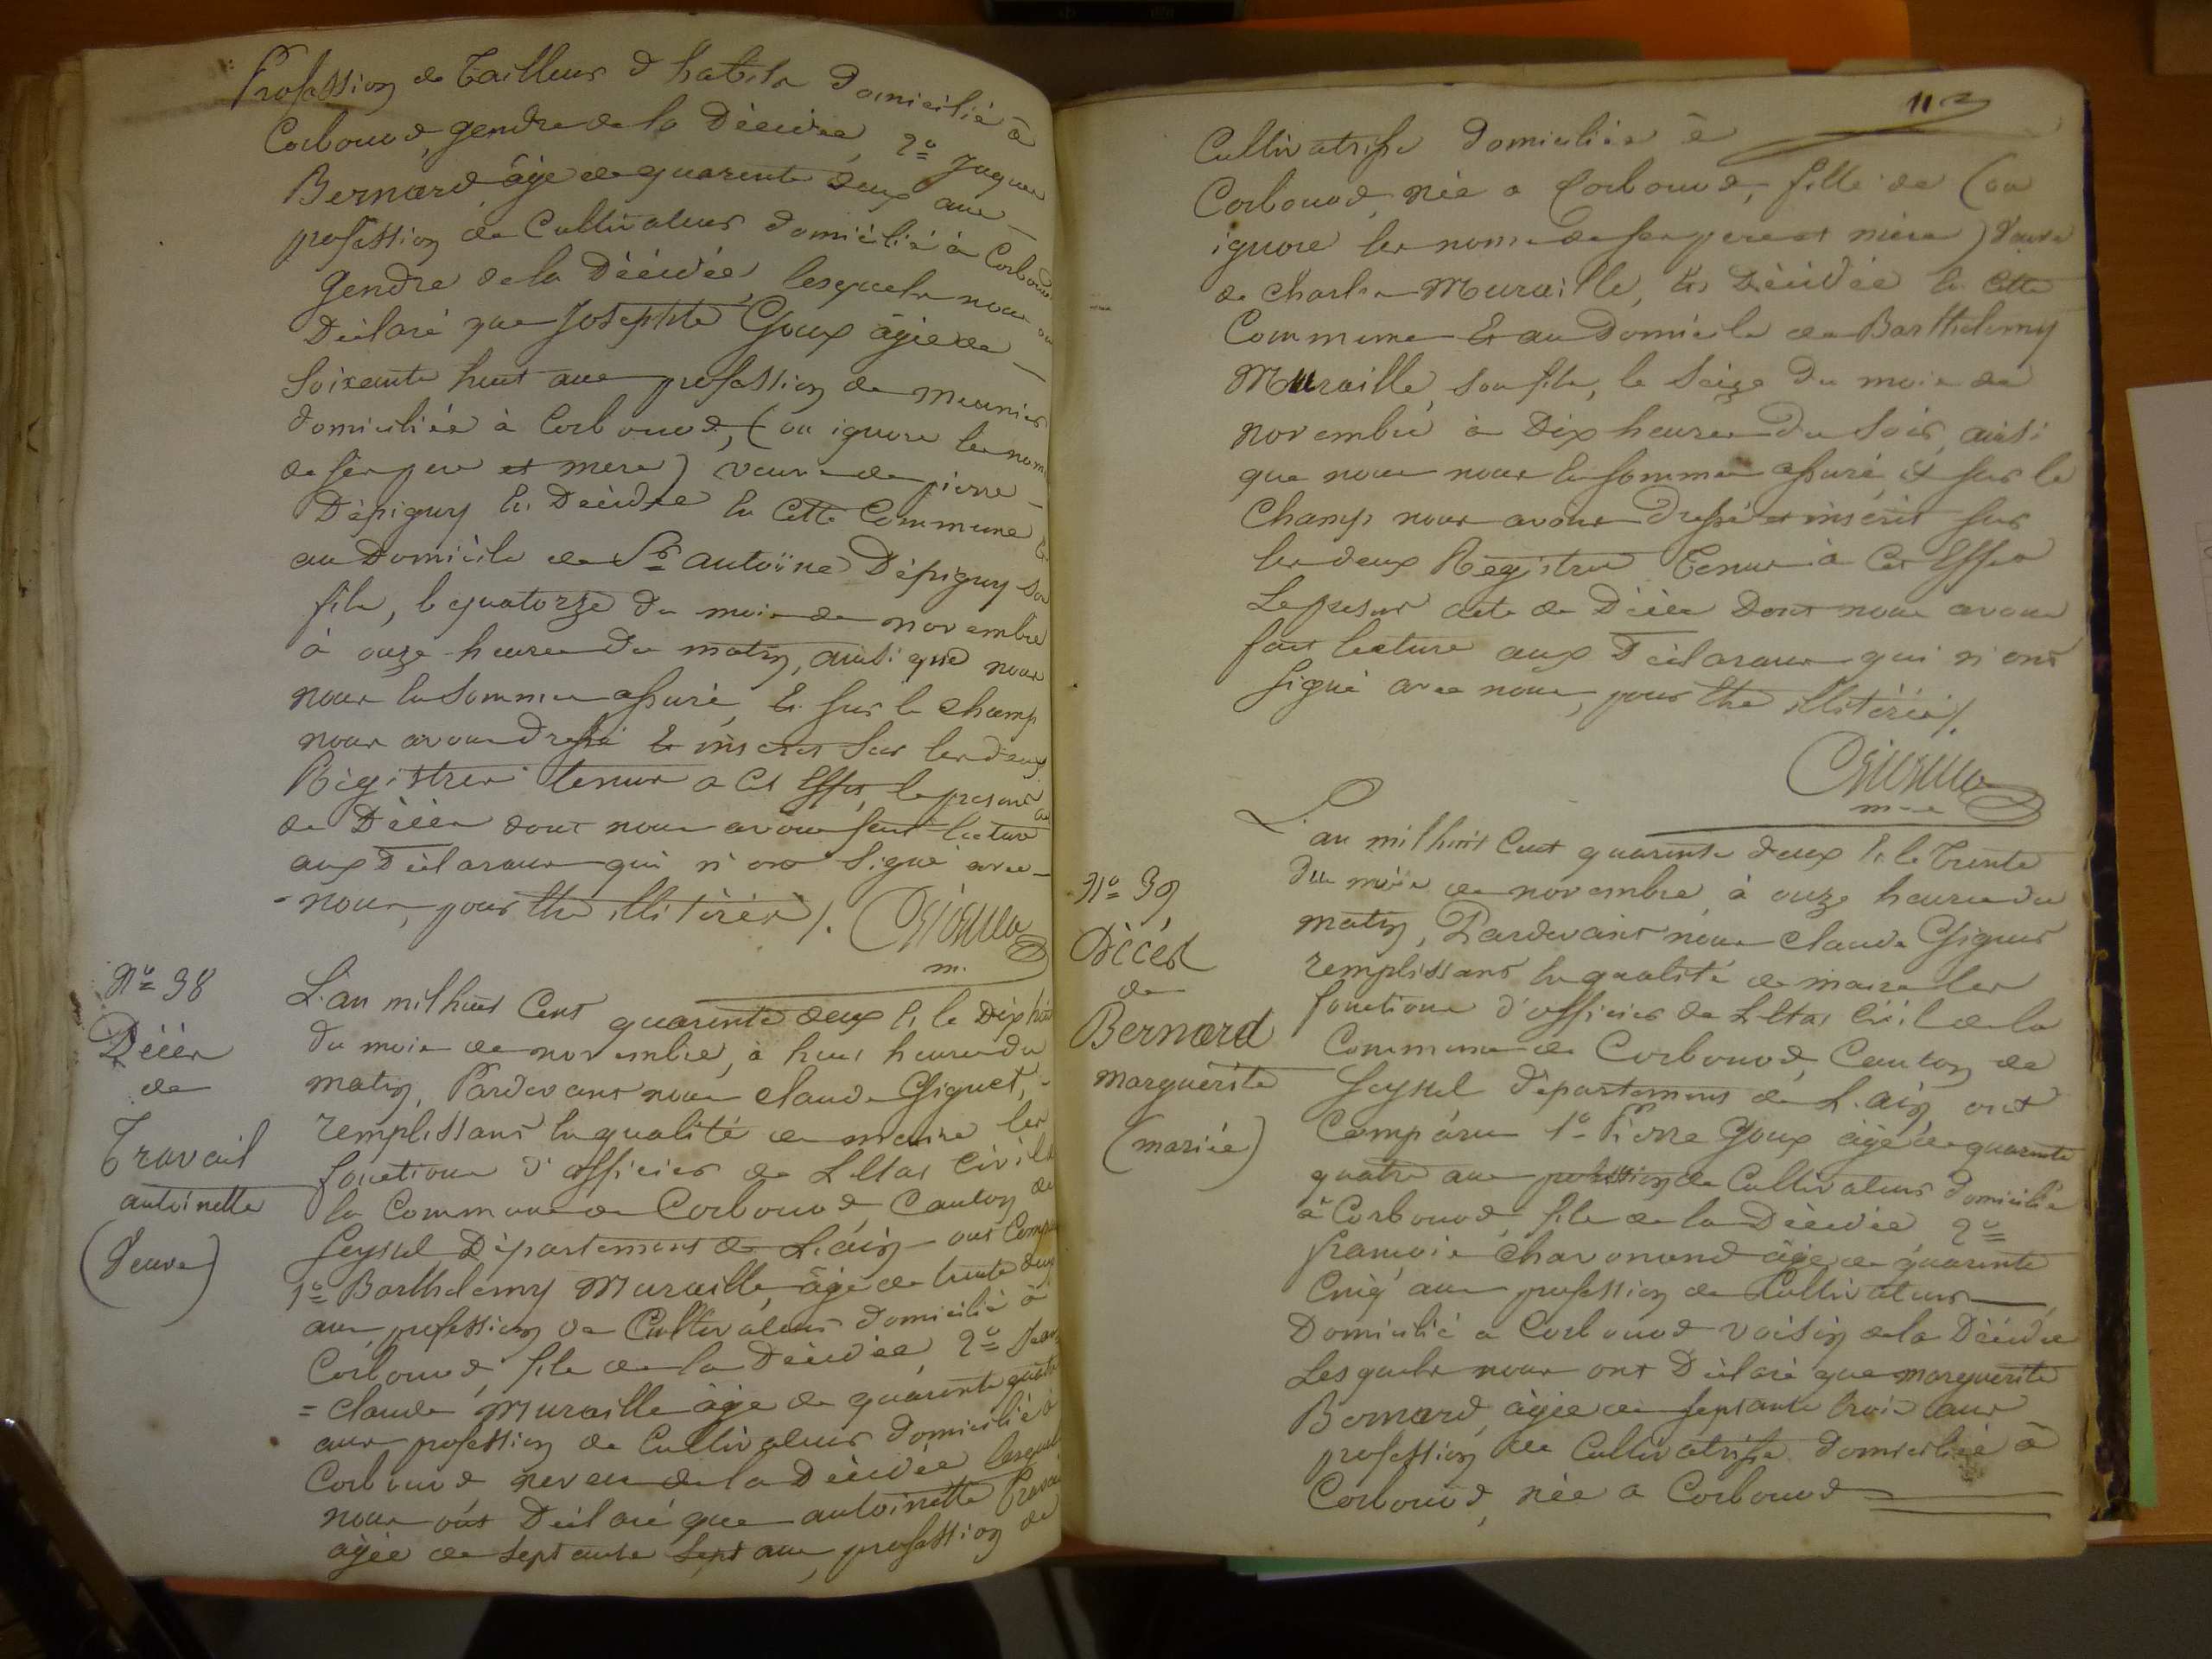 Profession de Tailleur d'habits domicilié à
Corbonod, gendre de la Décédée, 2º Jaques
Bernard, âgé de quarente deux ans
profession de Cultivateur domicilié à Corbonod
Gendre de la Décédée, lesquels nous on
Déclaré que Josephte Goux âgée de
Soixante huit ans profession de meunier
domiciliée à Corbonod, (on ignore les noms
de ses pere et mere) veuve de pierre
Dépigny est Décédée en cette Commune &
au Domicile de Sr antoine Dépigny son
fils, le quatorze du mois de novembre
à onze heures du matin, ainsi que nous
nous en sommes assuré, et sur le champ
nous avons dressé et inscrit sur les deux
Régistres tenus a cet effet, le présent acte
de Décès dont nous avons fait lecture
aux Déclarants qui n'ont signé avec
nous, pour être illitérés /.
m.
Nº 38
Décès
de
Travail
antoinette
(Veuve)
L'an mil huit Cent quarente deux et le Dix huit
du mois de novembre, à huit heures du
matin, Pardevant nous Claude Giguet,
remplissant la qualité de maire les
fonctions d'officier de L'Etat Civil de
la Commune de Corbonod, Canton de
Seyssel Département de L'ain ont Comparu
1º Barthelemy Muraille âgé de trente deux
ans, profession de Cultivateur domicilié à
Corbonod, fils de la Décédée, 2º Jean
= Claude Muraille âgé de quarente quatre
ans profession de Cultivateur domicilié à
Corbonod neveu de la Décédée lesquels
nous ont Déclaré que antoinette Travail
âgée de septante sept ans, profession de
112
Cultivatrisse domiciliée à
Corbonod, née a Corbonod, fille de (on
ignore les noms de ses pere et mère) Veuve
de Charles Muraille, est Décédée en cette
Commune & au Domicile de Barthelemy
Muraille, son fils, le Seize du mois de
novembre à Dix heures du soir, ainsi
que nous nous en sommes assuré, et sur le
Champ nous avons dressé et inscrit sur
les deux Régistres Tenus à cet effet
Le present acte de Décès Dont nous avons
fait lecture aux Déclarants qui n'ont
signé avec nous, pour être illitérés /.
Nº 39
Décès
de
Bernard
marguérite
(mariée)
L'an mil huit Cent quarente deux et le Trente
du mois de novembre, à onze heures du
matin, Pardevant nous Claude Giguet
remplissant la qualité de maire les
fonctions d'officier de L'Etat Civil de la
Commune de Corbonod, Canton de
Seyssel département de L'ain ont
Comparu 1º Pierre Goux âgé de quarente
quatre ans profession de Cultivateur domicilié
à Corbonod, fils de la Décédée, 2º
françois Charonond âgé de quarente
Cinq ans profession de Cultivateur
Domicilié a Corbonod voisin de la Décédée
Lesquels nous ont Déclaré que marguerite
Bernard, âgée de septante trois ans
profession de Cultivatrisse domiciliée à
Corbonod, née a Corbonod